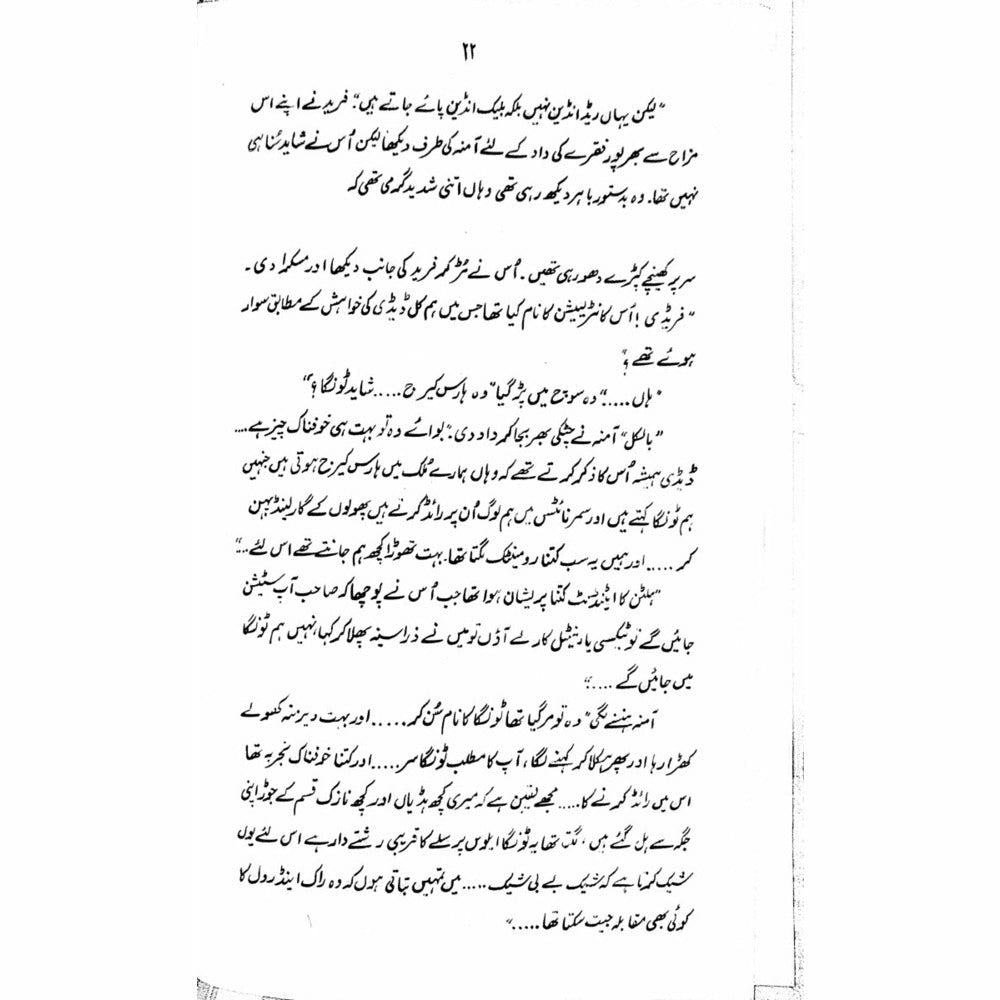 ۲۲
"لیکن یہاں ریڈ انڈین نہیں بلکہ بلیک انڈین پائے جاتے ہیں"۔ فرید نے اپنے اس
مزاح سے بھرپور فقرے کی داد کے لئے آمنہ کی طرف دیکھا لیکن اُس نے شاید سُنا ہی
نہیں تھا۔ وہ بدستور باہر دیکھ رہی تھی وہاں اتنی شدید گرمی تھی کہ
سر پر کھینچے کپڑے دھو رہی تھیں۔ اُس نے مڑ کر فرید کی جانب دیکھا اور مسکرا دی۔
"فریڈی! اُس کانٹریپشن کا نام کیا تھا جس میں ہم کل ڈیڈی کی خواہش کے مطابق سوار
ہوئے تھے؟"
"ہاں....." وہ سوچ میں پڑ گیا "وہ ہارس کیرج..... شاید ٹونگا؟"
"بالکل" آمنہ نے چٹکی بھر بجا کر داد دی۔ "بوائے وہ تو بہت ہی خوفناک چیز ہے....
ڈیڈی ہمیشہ اُس کا ذکر کرتے تھے کہ وہاں ہمارے مُلک میں ہارس کیرج ہوتی ہیں جنہیں
ہم ٹونگا کہتے ہیں اور سمر نائٹس میں ہم لوگ اُن پر رائڈ کرتے ہیں پھولوں کے گارلینڈ پہن
کر ..... اور ہمیں یہ سب کتنا رومینٹک لگتا تھا۔ بہت تھوڑا کچھ ہم جانتے تھے اس لئے..."
"ہلٹن کا اٹینڈنٹ کتنا پریشان ہوا تھا جب اُس نے پوچھا کہ صاحب آپ سٹیشن
جائیں گے تو ٹیکسی یا رینٹل کار لے آؤں تو میں نے ذرا سینہ پھلا کر کہا، نہیں ہم ٹونگا
میں جائیں گے ....."
آمنہ ہنسنے لگی "وہ تو مر گیا تھا ٹونگا کا نام سُن کر ..... اور بہت دیر منہ کھولے
کھڑا رہا اور پھر ہکلا کر کہنے لگا، آپ کا مطلب ٹونگا سر ..... اور کتنا خوفناک تجربہ تھا
اس میں رائڈ کرنے کا..... مجھے یقین ہے کہ میری کچھ ہڈیاں اور کچھ نازک قسم کے جوڑ اپنی
جگہ سے ہل گئے ہیں، لگتا تھا یہ ٹونگا ایلوس پرسلے کا قریبی رشتے دار ہے اس لئے یوں
شیک کرتا ہے کہ شیک بے بی شیک ..... میں تمہیں بتاتی ہوں کہ وہ راک اینڈ رول کا
کوئی بھی مقابلہ جیت سکتا تھا ....."